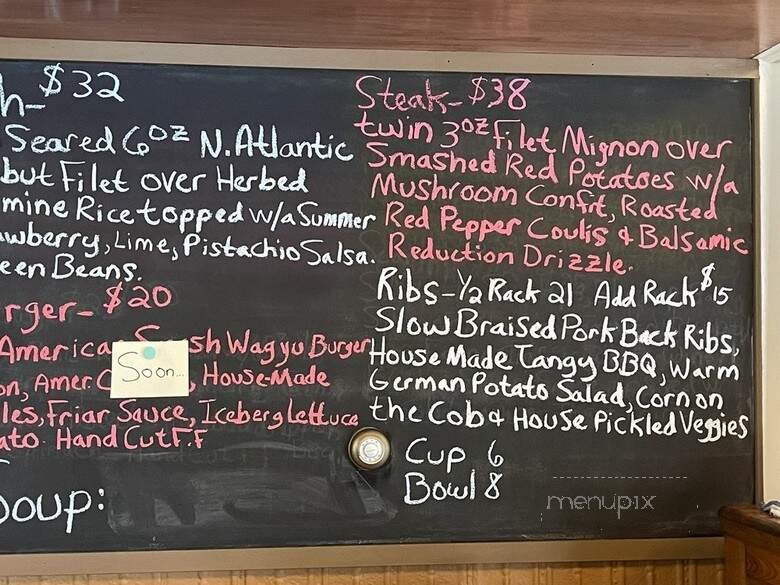 h- $32
Seared 6oz N. Atlantic
but Filet over Herbed
mine Rice topped w/a Summer
awberry, Lime, Pistachio Salsa.
een Beans.
rger- $20
America Smash Wagyu Burger
Soon...
on, Amer C , House-Made
les, Friar Sauce, Iceberg Lettuce
ato. Hand Cut F.F
oup:
Steak- $38
twin 3oz filet Mignon over
Smashed Red Potatoes w/a
Mushroom Confit, Roasted
Red Pepper Coulis & Balsamic
Reduction Drizzle.
Ribs-1/2 Rack 21 Add Rack $15
Slow Braised Pork Back Ribs,
House Made Tangy BBQ, Warm
German Potato Salad, Corn on
the Cob & House Pickled Veggies
Cup 6
Bowl 8
menupix